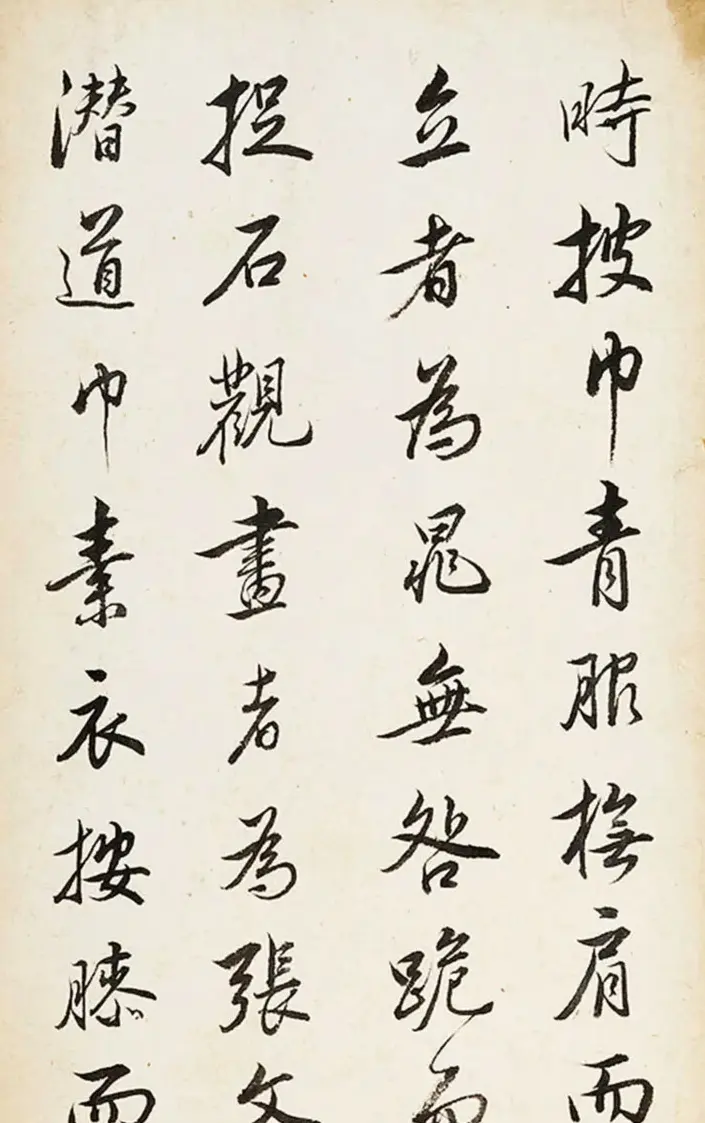 時披巾青服撫肩而
立者為晁無咎跪而
捉石觀畫者為張文
潜道巾素衣按膝而